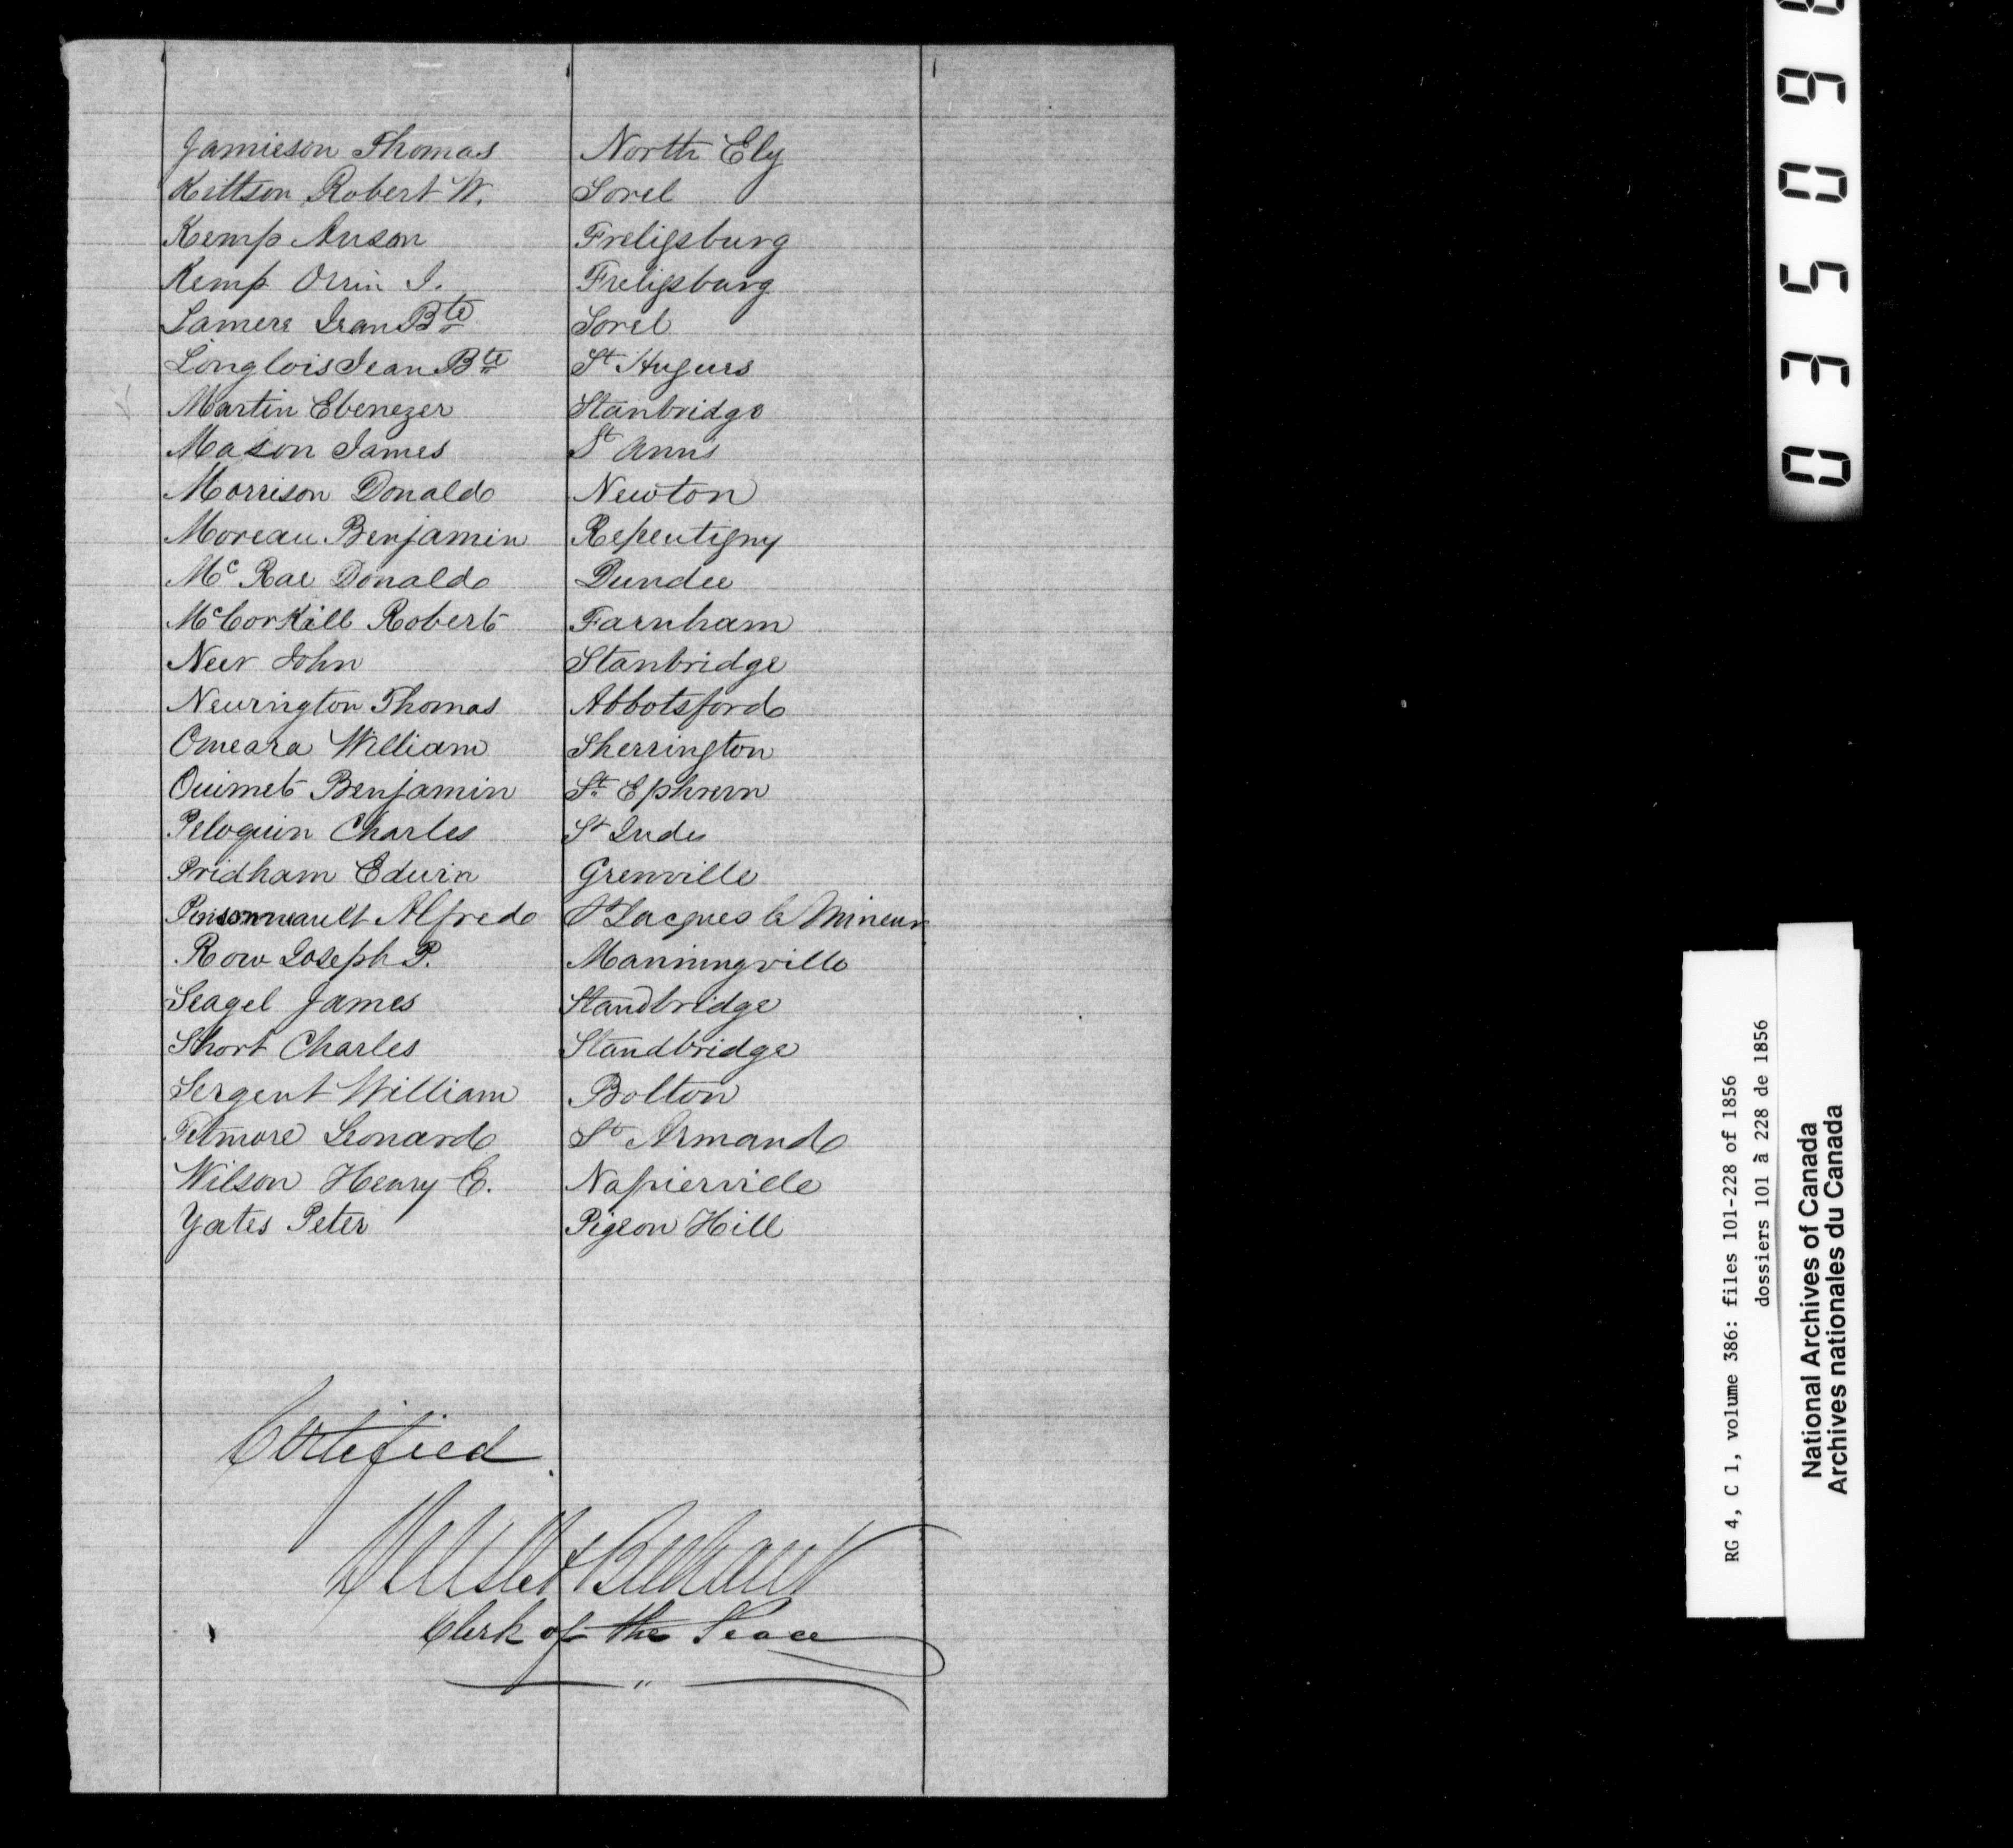 Jamieson Thomas North Ely
Kittson Robert W. Sorel
Kemp Anson Freligsburg
Kemp Orrin I. Freligsburg
Lamere Jean Bte Sorel
Longlois Jean Bte St Hugues
Martin Ebenezer Stanbridge
Mason James St Anns
Morrison Donald Newton
Moreau Benjamin Repentigny
Mc Rae Donald Dundee
McCorkill Robert Farnham
Neer John Stanbridge
Newrington Thomas Abbotsford
Omeara William Sherrington
Ouimet Benjamin St Ephrem
Peloquin Charles St Judes
Pridham Edwin Grenville
Alfred St Jacques le Mineur
Row Joseph P. Manningville
Seagel James Standbridge
Short Charles Standbridge
Sergent William Bolton
Tetmore Leonard St Armand
Wilson Henry C. Napierville
Yates Peter Pigeon Hill
Certified
Clerk of the Peace
"
035096
RG 4, C 1, volume 386: files 101-228 of 1856
dossiers 101 à 228 de 1856
National Archives of Canada
Archives nationales du Canada